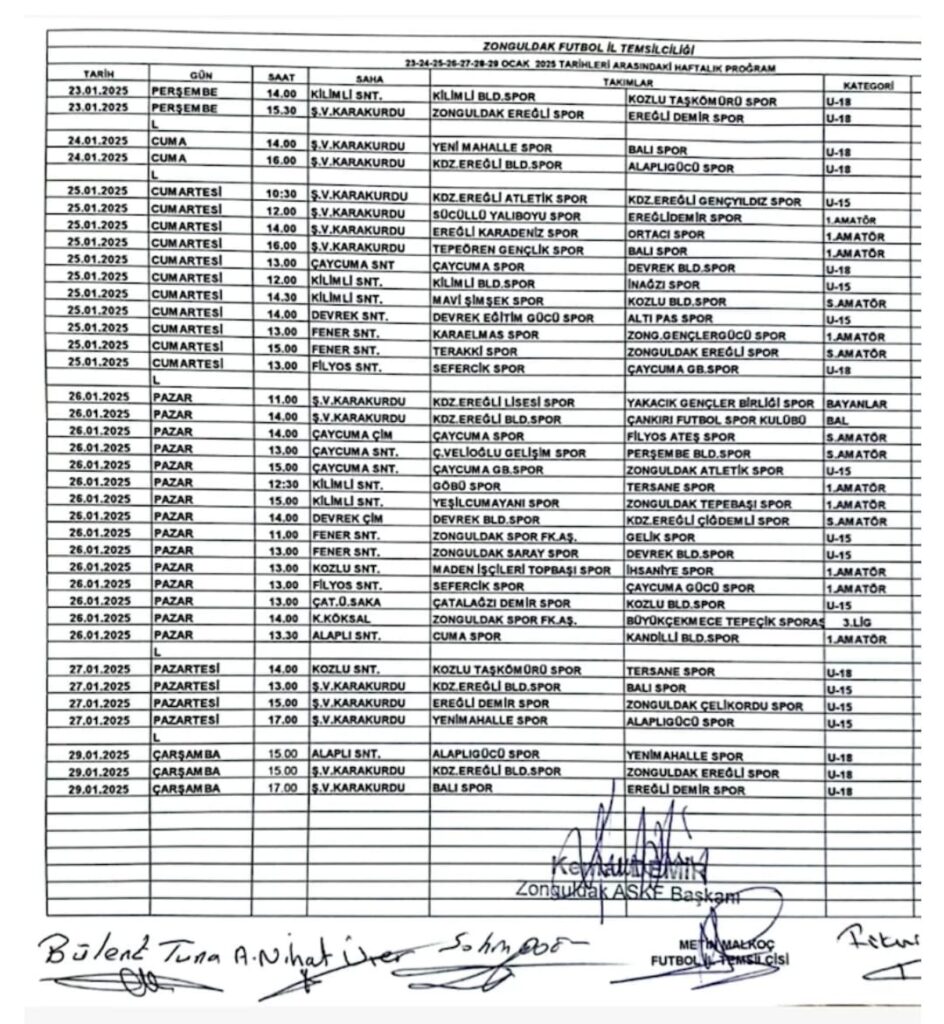 ZONGULDAK FUTBOL İL TEMSİLCİLİĞİ
23-24-25-26-27-28-29 OCAK 2025 TARİHLERİ ARASINDAKİ HAFTALIK PROĞRAM
TARİH GÜN SAAT SAHA TAKIMLAR KATEGORİ
23.01.2025 PERŞEMBE 14.00 KİLİMLİ SNT. KİLİMLİ BLD.SPOR KOZLU TAŞKÖMÜRÜ SPOR U-18
23.01.2025 PERŞEMBE 15.30 Ş.V.KARAKURDU ZONGULDAK EREĞLİ SPOR EREĞLİ DEMİR SPOR U-18
L
24.01.2025 CUMA 14.00 Ş.V.KARAKURDU YENİ MAHALLE SPOR BALI SPOR U-18
24.01.2025 CUMA 16.00 Ş.V.KARAKURDU KDZ.EREĞLİ BLD.SPOR ALAPLIGÜCÜ SPOR U-18
L
25.01.2025 CUMARTESİ 10:30 Ş.V.KARAKURDU KDZ.EREĞLİ ATLETİK SPOR KDZ.EREĞLİ GENÇYILDIZ SPOR U-15
25.01.2025 CUMARTESİ 12.00 Ş.V.KARAKURDU SÜCÜLLÜ YALIBOYU SPOR EREĞLİDEMİR SPOR 1.AMATÖR
25.01.2025 CUMARTESİ 14.00 Ş.V.KARAKURDU EREĞLİ KARADENİZ SPOR ORTACI SPOR 1.AMATÖR
25.01.2025 CUMARTESİ 16.00 Ş.V.KARAKURDU TEPEÖREN GENÇLİK SPOR BALI SPOR 1.AMATÖR
25.01.2025 CUMARTESİ 13.00 ÇAYCUMA SNT ÇAYCUMA SPOR DEVREK BLD.SPOR U-18
25.01.2025 CUMARTESİ 12.00 KİLİMLİ SNT. KİLİMLİ BLD.SPOR İNAĞZI SPOR U-15
25.01.2025 CUMARTESİ 14.30 KİLİMLİ SNT. MAVİ ŞİMŞEK SPOR KOZLU BLD.SPOR S.AMATÖR
25.01.2025 CUMARTESİ 14.00 DEVREK SNT. DEVREK EĞİTİM GÜCÜ SPOR ALTI PAS SPOR U-15
25.01.2025 CUMARTESİ 13.00 FENER SNT. KARAELMAS SPOR ZONG.GENÇLERGÜCÜ SPOR 1.AMATÖR
25.01.2025 CUMARTESİ 15.00 FENER SNT. TERAKKİ SPOR ZONGULDAK EREĞLİ SPOR S.AMATÖR
25.01.2025 CUMARTESİ 13.00 FİLYOS SNT. SEFERCİK SPOR ÇAYCUMA GB.SPOR U-18
L
26.01.2025 PAZAR 11.00 Ş.V.KARAKURDU KDZ.EREĞLİ LİSESİ SPOR YAKACIK GENÇLER BİRLİĞİ SPOR BAYANLAR
26.01.2025 PAZAR 14.00 Ş.V.KARAKURDU KDZ.EREĞLİ BLD.SPOR ÇANKIRI FUTBOL SPOR KULÜBÜ BAL
26.01.2025 PAZAR 14.00 ÇAYCUMA ÇİM ÇAYCUMA SPOR FİLYOS ATEŞ SPOR S.AMATÖR
26.01.2025 PAZAR 13.00 ÇAYCUMA SNT. Ç.VELİOĞLU GELİŞİM SPOR PERŞEMBE BLD.SPOR S.AMATÖR
26.01.2025 PAZAR 15.00 ÇAYCUMA SNT. ÇAYCUMA GB.SPOR ZONGULDAK ATLETİK SPOR U-15
26.01.2025 PAZAR 12:30 KİLİMLİ SNT. GÖBÜ SPOR TERSANE SPOR 1.AMATÖR
26.01.2025 PAZAR 15.00 KİLİMLİ SNT. YEŞİLCUMAYANI SPOR ZONGULDAK TEPEBAŞI SPOR 1.AMATÖR
26.01.2025 PAZAR 14.00 DEVREK ÇİM DEVREK BLD.SPOR KDZ.EREĞLİ ÇİĞDEMLİ SPOR S.AMATÖR
26.01.2025 PAZAR 11.00 FENER SNT. ZONGULDAK SPOR FK.AŞ. GELİK SPOR U-15
26.01.2025 PAZAR 13.00 FENER SNT. ZONGULDAK SARAY SPOR DEVREK BLD.SPOR U-15
26.01.2025 PAZAR 13.00 KOZLU SNT. MADEN İŞÇİLERİ TOPBAŞI SPOR İHSANİYE SPOR 1.AMATÖR
26.01.2025 PAZAR 13.00 FİLYOS SNT. SEFERCİK SPOR ÇAYCUMA GÜCÜ SPOR 1.AMATÖR
26.01.2025 PAZAR 13.00 ÇAT.Ü.SAKA ÇATALAĞZI DEMİR SPOR KOZLU BLD.SPOR U-15
26.01.2025 PAZAR 14.00 K.KÖKSAL ZONGULDAK SPOR FK.AŞ. BÜYÜKÇEKMECE TEPEÇİK SPORAŞ 3.LİG
26.01.2025 PAZAR 13.30 ALAPLI SNT. CUMA SPOR KANDİLLİ BLD.SPOR 1.AMATÖR
L
27.01.2025 PAZARTESİ 14.00 KOZLU SNT. KOZLU TAŞKÖMÜRÜ SPOR TERSANE SPOR U-18
27.01.2025 PAZARTESİ 13.00 Ş.V.KARAKURDU KDZ.EREĞLİ BLD.SPOR BALI SPOR U-15
27.01.2025 PAZARTESİ 15.00 Ş.V.KARAKURDU EREĞLİ DEMİR SPOR ZONGULDAK ÇELİKORDU SPOR U-15
27.01.2025 PAZARTESİ 17.00 Ş.V.KARAKURDU YENİMAHALLE SPOR ALAPLIGÜCÜ SPOR U-15
L
29.01.2025 ÇARŞAMBA 15.00 ALAPLI SNT. ALAPLIGÜCÜ SPOR YENİMAHALLE SPOR U-18
29.01.2025 ÇARŞAMBA 15.00 Ş.V.KARAKURDU KDZ.EREĞLİ BLD.SPOR ZONGULDAK EREĞLİ SPOR U-18
29.01.2025 ÇARŞAMBA 17.00 Ş.V.KARAKURDU BALI SPOR EREĞLİ DEMİR SPOR U-18
Zonguldak ASKF Başkanı
Bülent Tuna A.Nihat
METİN MALKOÇ
FUTBOL İL TEMSİLCİSİ